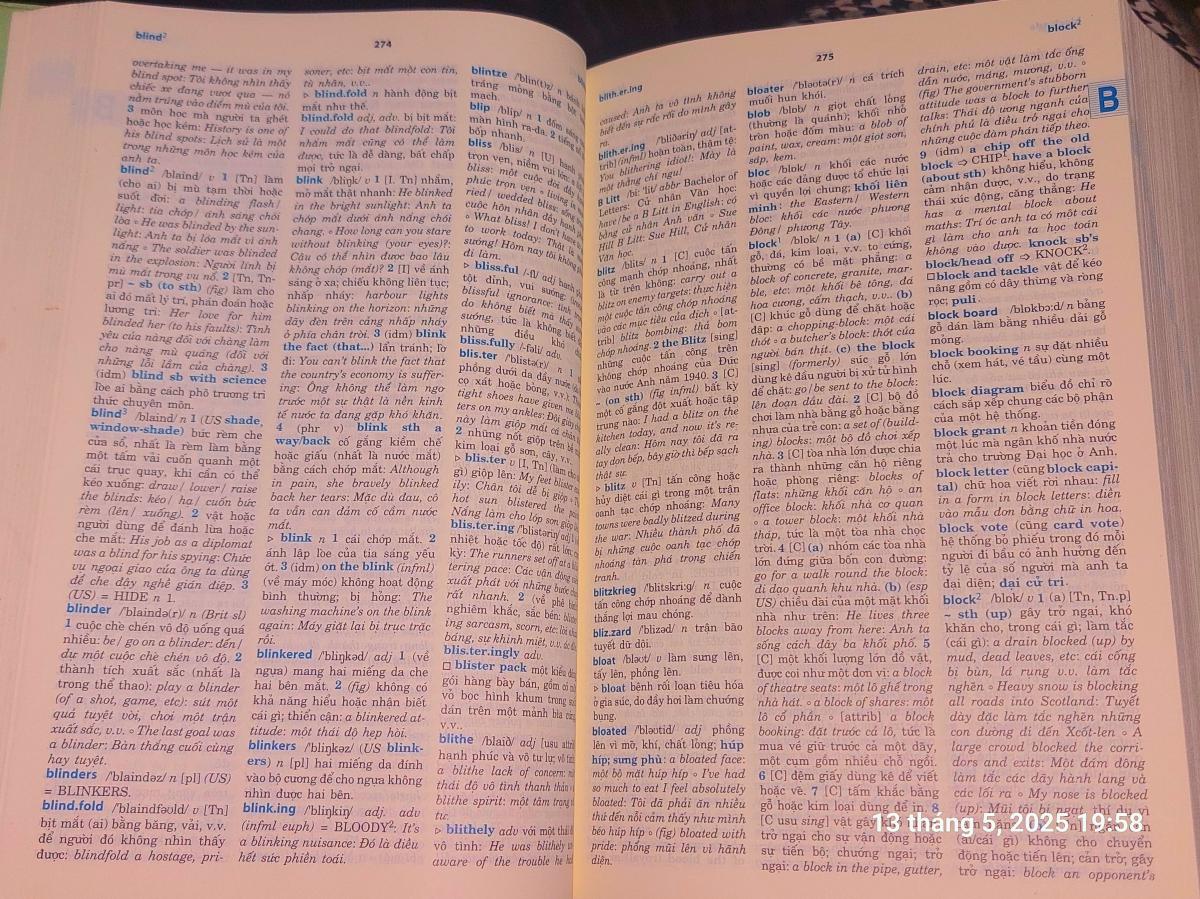 blind²
274
overtaking me — it was in my
blind spot: Tôi không nhìn thấy
chiếc xe đang vượt qua — nó
nằm trúng vào điểm mù của tôi.
3 môn học mà người ta ghét
hoặc học kém: History is one of
his blind spots: Lịch sử là một
trong những môn học kém của
anh ta.
blind² /blaind/ v 1 [Tn] làm
(cho ai) bị mù tạm thời hoặc
suốt đời: a blinding flash/
light: tia chớp/ ánh sáng chói
lòa ∘ He was blinded by the sun-
light: Anh ta bị lóa mắt vì ánh
nắng ∘ The soldier was blinded
in the explosion: Người lính bị
mù mắt trong vụ nổ. 2 [Tn, Tn-
pr] ~ sb (to sth) (fig) làm cho
ai đó mất lý trí, phán đoán hoặc
lương tri: Her love for him
blinded her (to his faults): Tình
yêu của nàng đối với chàng làm
cho nàng mù quáng (đối với
những lỗi lầm của chàng). 3
(idm) blind sb with science
lòe ai bằng cách phô trương tri
thức chuyên môn.
blind³ /blaind/ n 1 (US shade,
window-shade) bức rèm che
cửa sổ, nhất là rèm làm bằng
một tấm vải cuốn quanh một
cái trục quay, khi cần có thể
kéo xuống: draw/ lower/ raise
the blinds: kéo/ hạ/ cuốn bức
rèm (lên/ xuống). 2 vật hoặc
người dùng để đánh lừa hoặc
che mắt: His job as a diplomat
was a blind for his spying: Chức
vụ ngoại giao của ông ta dùng
để che đậy nghề gián điệp. 3
(US) = HIDE n 1.
blinder /'blaində(r)/ n (Brit sl)
1 cuộc chè chén vô độ uống quá
nhiều: be/ go on a blinder: đến/
dự một cuộc chè chén vô độ. 2
thành tích xuất sắc (nhất là
trong thể thao): play a blinder
(of a shot, game, etc): sút một
quả tuyệt vời, chơi một trận
xuất sắc, v.v. ∘ The last goal was
a blinder: Bàn thắng cuối cùng
hay tuyệt.
blinders /'blaindəz/ n [pl] (US)
= BLINKERS.
blind.fold /'blaindfəʊld/ v [Tn]
bịt mắt (ai) bằng băng, vải, v.v.
để người đó không nhìn thấy
được: blindfold a hostage, pri-
soner, etc: bịt mắt một con tin,
tù nhân, v.v..
▷ blind.fold n hành động bịt
mắt như thế.
blind.fold adj, adv. bị bịt mắt:
I could do that blindfold: Tôi
nhắm mắt cũng có thể làm
được, tức là dễ dàng, bất chấp
mọi trở ngại.
blink /bliŋk/ v 1 [I, Tn] nhắm,
mở mắt thật nhanh: He blinked
in the bright sunlight: Anh ta
chớp mắt dưới ánh nắng chói
chang. ∘ How long can you stare
without blinking (your eyes)?:
Cậu có thể nhìn được bao lâu
không chớp (mắt)? 2 [I] về ánh
sáng ở xa; chiếu không liên tục;
nhấp nháy: harbour lights
blinking on the horizon: những
dãy đèn trên cảng nhấp nháy
ở phía chân trời. 3 (idm) blink
the fact (that...) lẩn tránh; lờ
đi: You can't blink the fact that
the country's economy is suffer-
ing: Ông không thể làm ngơ
trước một sự thật là nền kinh
tế nước ta đang gặp khó khăn.
4 (phr v) blink sth a
way/back cố gắng kiềm chế
hoặc giấu (nhất là nước mắt)
bằng cách chớp mắt: Although
in pain, she bravely blinked
back her tears: Mặc dù đau, cô
ta vẫn can đảm cố cầm nước
mắt.
▷ blink n 1 cái chớp mắt. 2
ánh lập lòe của tia sáng yếu
ớt. 3 (idm) on the blink (infml)
(về máy móc) không hoạt động
bình thường; bị hỏng: The
washing machine's on the blink
again: Máy giặt lại bị trục trặc
rồi.
blinkered /'bliŋkəd/ adj 1 (về
ngựa) mang hai miếng da che
hai bên mắt. 2 (fig) không có
khả năng hiểu hoặc nhận biết
cái gì; thiển cận: a blinkered at-
titude: một thái độ hẹp hòi.
blinkers /'bliŋkəz/ (US blink-
ers) n [pl] hai miếng da đính
vào bộ cương để cho ngựa không
nhìn được hai bên.
blink.ing /'bliŋkiŋ/ adj. adv
(infml euph) = BLOODY². It's
a blinking nuisance: Đó là điều
hết sức phiền toái.
blintze /'blin(t)z/ n bánh
tráng mỏng bằng bột
mạch.
blip /blip/ n 1 đốm sáng
màn hình ra-đa. 2 tiếng nổ
bốp nhanh.
bliss /blis/ n [U] hạnh
trọn vẹn, niềm vui lớn:
bliss: một cuộc đời đầy
phúc trọn vẹn ∘ living in
ried/ wedded bliss: sống
cuộc hôn nhân đầy hạnh
∘ What bliss! I don't have
to work today: Thật là
sướng! Hôm nay tôi không
đi làm.
▷ bliss.ful /-fl/ adj hạnh
tột đỉnh, vui sướng:
blissful ignorance: tình
do không biết mà thấy
sướng, tức là không biết
những điều khó
bliss.fully /-fəli/ adv.
blis.ter /'blistə(r)/ n 1
phồng dưới da đầy nước
cọ xát hoặc bỏng, v.v.):
tight shoes have given me
ters on my ankles: Đôi giày
này làm giộp mắt cá chân
2 những nốt giộp trên bề
kim loại gỗ sơn, cây, v.v.
▷ blis.ter v [I, Tn] (làm cho
gì) giộp lên: My feet blister
ily: Chân tôi dễ bị giộp ∘
hot sun blistered the
Nắng làm cho lớp sơn giộp
blis.ter.ing /'blistəriŋ/ adj 1
nhiệt hoặc tốc độ) rất lớn, cực
kỳ: The runners set off at a
tering pace: Các vận động
xuất phát với những bước
rất nhanh. 2 (về phê
nghiêm khắc, sắc bén: blister-
ing sarcasm, scorn, etc: lời
báng, sự khinh miệt, v.v.
blis.ter.ingly adv.
□ blister pack một kiểu
gói hàng bày bán, gồm có
vỏ bọc hình khum trong
dán trên một mảnh bìa cứng,
v.v..
blithe /blaið/ adj [usu attrib]
hạnh phúc và vô tư lự;
a blithe lack of concern:
thái độ vô tình thanh thản ∘
blithe spirit: một tâm trạng
tư.
▷ blithely adv với một thái
vô tình: He was blithely
aware of the trouble he
blith.er.ing
275
block²
B
caused: Anh ta vô tình không
biết đến sự rắc rối do mình gây
ra.
blith.er.ing /'bliðəriŋ/ adj [at-
trib] (infml) hoàn toàn, thậm tệ:
You blithering idiot!: Mày là
một thằng chí ngu!
B Litt /bi: 'lit/ abbr Bachelor of
Letters: Cử nhân Văn học:
have/be a B Litt in English: có
bằng cử nhân Anh văn ∘ Sue
Hill B Litt: Sue Hill, Cử nhân
Văn học.
blitz /blits/ n 1 [C] cuộc tấn
công mạnh chớp nhoáng, nhất
là từ trên không: carry out a
blitz on enemy targets: thực hiện
một cuộc tấn công chớp nhoáng
vào các mục tiêu của địch ∘ [at-
trib] blitz bombing: thả bom
chớp nhoáng. 2 the Blitz [sing]
những cuộc tấn công trên
không chớp nhoáng của Đức
vào nước Anh năm 1940. 3 [C]
~ (on sth) (fig infml) bất kỳ
một cố gắng đột xuất hoặc tập
trung nào: I had a blitz on the
kitchen today, and now it's re-
ally clean: Hôm nay tôi đã ra
tay dọn bếp, bây giờ thì bếp sạch
thật sự.
▷ blitz v [Tn] tấn công hoặc
hủy diệt cái gì trong một trận
oanh tạc chớp nhoáng: Many
towns were badly blitzed during
the war: Nhiều thành phố đã
bị những cuộc oanh tạc chớp
nhoáng tàn phá trong chiến
tranh.
blitzkrieg /'blitskri:g/ n cuộc
tấn công chớp nhoáng để dành
thắng lợi mau chóng.
bliz.zard /'blizəd/ n trận bão
tuyết dữ dội.
bloat /bləʊt/ v làm sưng lên,
tấy lên, phồng lên.
▷ bloat bệnh rối loạn tiêu hóa
ở gia súc, do dầy hơi làm chướng
bụng.
bloated /'bləʊtid/ adj phồng
lên vì mỡ, khí, chất lỏng; húp
híp; sưng phù: a bloated face:
một bộ mặt húp híp ∘ I've had
so much to eat I feel absolutely
bloated: Tôi đã phải ăn nhiều
thứ đến nỗi cảm thấy như mình
béo húp híp ∘ (fig) bloated with
pride: phổng mũi lên vì hãnh
diện.
bloater /'bləʊtə(r)/ n cá trích
muối hun khói.
blob /blɒb/ n giọt chất lỏng
(thường là quánh); khối nhỏ
tròn hoặc đốm màu: a blob of
paint, wax, cream: một giọt sơn,
sáp, kem.
bloc /blɒk/ n khối các nước
hoặc các đảng được tổ chức lại
vì quyền lợi chung; khối liên
minh: the Eastern/ Western
bloc: khối các nước phương
Đông/ phương Tây.
block¹ /blɒk/ n 1 (a) [C] khối
gỗ, đá, kim loại, v.v. to cứng,
thường có bề mặt phẳng: a
block of concrete, granite, mar-
ble, etc: một khối bê tông, đá
hoa cương, cẩm thạch, v.v.. (b)
[C] khúc gỗ dùng để chặt hoặc
đập: a chopping-block: một cái
thớt ∘ a butcher's block: thớt của
người bán thịt. (c) the block
[sing] (formerly) súc gỗ lớn
dùng kê đầu người bị xử tử hình
để chặt: go/be sent to the block:
lên đoạn đầu đài. 2 [C] bộ đồ
chơi làm nhà bằng gỗ hoặc bằng
nhựa của trẻ con: a set of (build-
ing) blocks: một bộ đồ chơi xếp
nhà. 3 [C] tòa nhà lớn được chia
ra thành những căn hộ riêng
hoặc phòng riêng: blocks of
flats: những khối căn hộ ∘ an
office block: khối nhà cơ quan
∘ a tower block: một khối nhà
tháp, tức là một tòa nhà chọc
trời. 4 [C] (a) nhóm các tòa nhà
lớn đứng giữa bốn con đường:
go for a walk round the block:
đi dạo quanh khu nhà. (b) (esp
US) chiều dài của một mặt khối
nhà như trên: He lives three
blocks away from here: Anh ta
sống cách đây ba khối phố. 5
[C] một khối lượng lớn đồ vật,
được coi như một đơn vị: a block
of theatre seats: một lô ghế trong
nhà hát. ∘ a block of shares: một
lô cổ phần ∘ [attrib] a block
booking: đặt trước cả lô, tức là
mua vé giữ trước cả một dãy,
một cụm gồm nhiều chỗ ngồi.
6 [C] đệm giấy dùng kê để viết
hoặc vẽ. 7 [C] tấm khắc bằng
gỗ hoặc kim loại dùng để in. 8
[C usu sing] vật gây
trở ngại cho sự vận động hoặc
sự tiến bộ; chướng ngại; trở
ngại: a block in the pipe, gutter,
drain, etc: một vật làm tắc ống
dẫn nước, máng, mương, v.v. ∘
(fig) The government's stubborn
attitude was a block to further
talks: Thái độ ương ngạnh của
chính phủ là điều trở ngại cho
những cuộc đàm phán tiếp theo.
9 (idm) a chip off the old
block ⇒ CHIP¹. have a block
(about sth) không hiểu, không
cảm nhận được, v.v., do trạng
thái xúc động, căng thẳng: He
has a mental block about
maths: Trí óc anh ta có một cái
gì làm cho anh ta học toán
không vào được. knock sb's
block/head off ⇒ KNOCK².
□block and tackle vật để kéo
nâng gồm có dây thừng và ròng
rọc; puli.
block board /'blɒkbɔ:d/ n bảng
gỗ dán làm bằng nhiều dải gỗ
mỏng.
block booking n sự đặt nhiều
chỗ (xem hát, vé tầu) cùng một
lúc.
block diagram biểu đồ chỉ rõ
cách sắp xếp chung các bộ phận
của một hệ thống.
block grant n khoản tiền đóng
một lúc mà ngân khố nhà nước
trả cho trường Đại học ở Anh.
block letter (cũng block capi-
tal) chữ hoa viết rời nhau: fill
in a form in block letters: điền
vào mẫu đơn bằng chữ in hoa.
block vote (cũng card vote)
hệ thống bỏ phiếu trong đó mỗi
người đi bầu có ảnh hưởng đến
tỷ lệ của số người mà anh ta
đại diện; đại cử tri.
block² /blɒk/ v 1 (a) [Tn, Tn.p]
~ sth (up) gây trở ngại, khó
khăn cho, trong cái gì; làm tắc
(cái gì): a drain blocked (up) by
mud, dead leaves, etc: cái cống
bị bùn, lá rụng v.v. làm tắc
nghẽn ∘ Heavy snow is blocking
all roads into Scotland: Tuyết
dày đặc làm tắc nghẽn những
con đường đi đến Xcốt-len ∘ A
large crowd blocked the corri-
dors and exits: Một đám đông
làm tắc các dãy hành lang và
các lối ra ∘ My nose is blocked
(up): Mũi tôi bị ngạt, thí dụ vì
(ai/cái gì) không cho chuyển
động hoặc tiến lên; cản trở, gây
trở ngại: block an opponent's
13 tháng 5, 2025 19:58